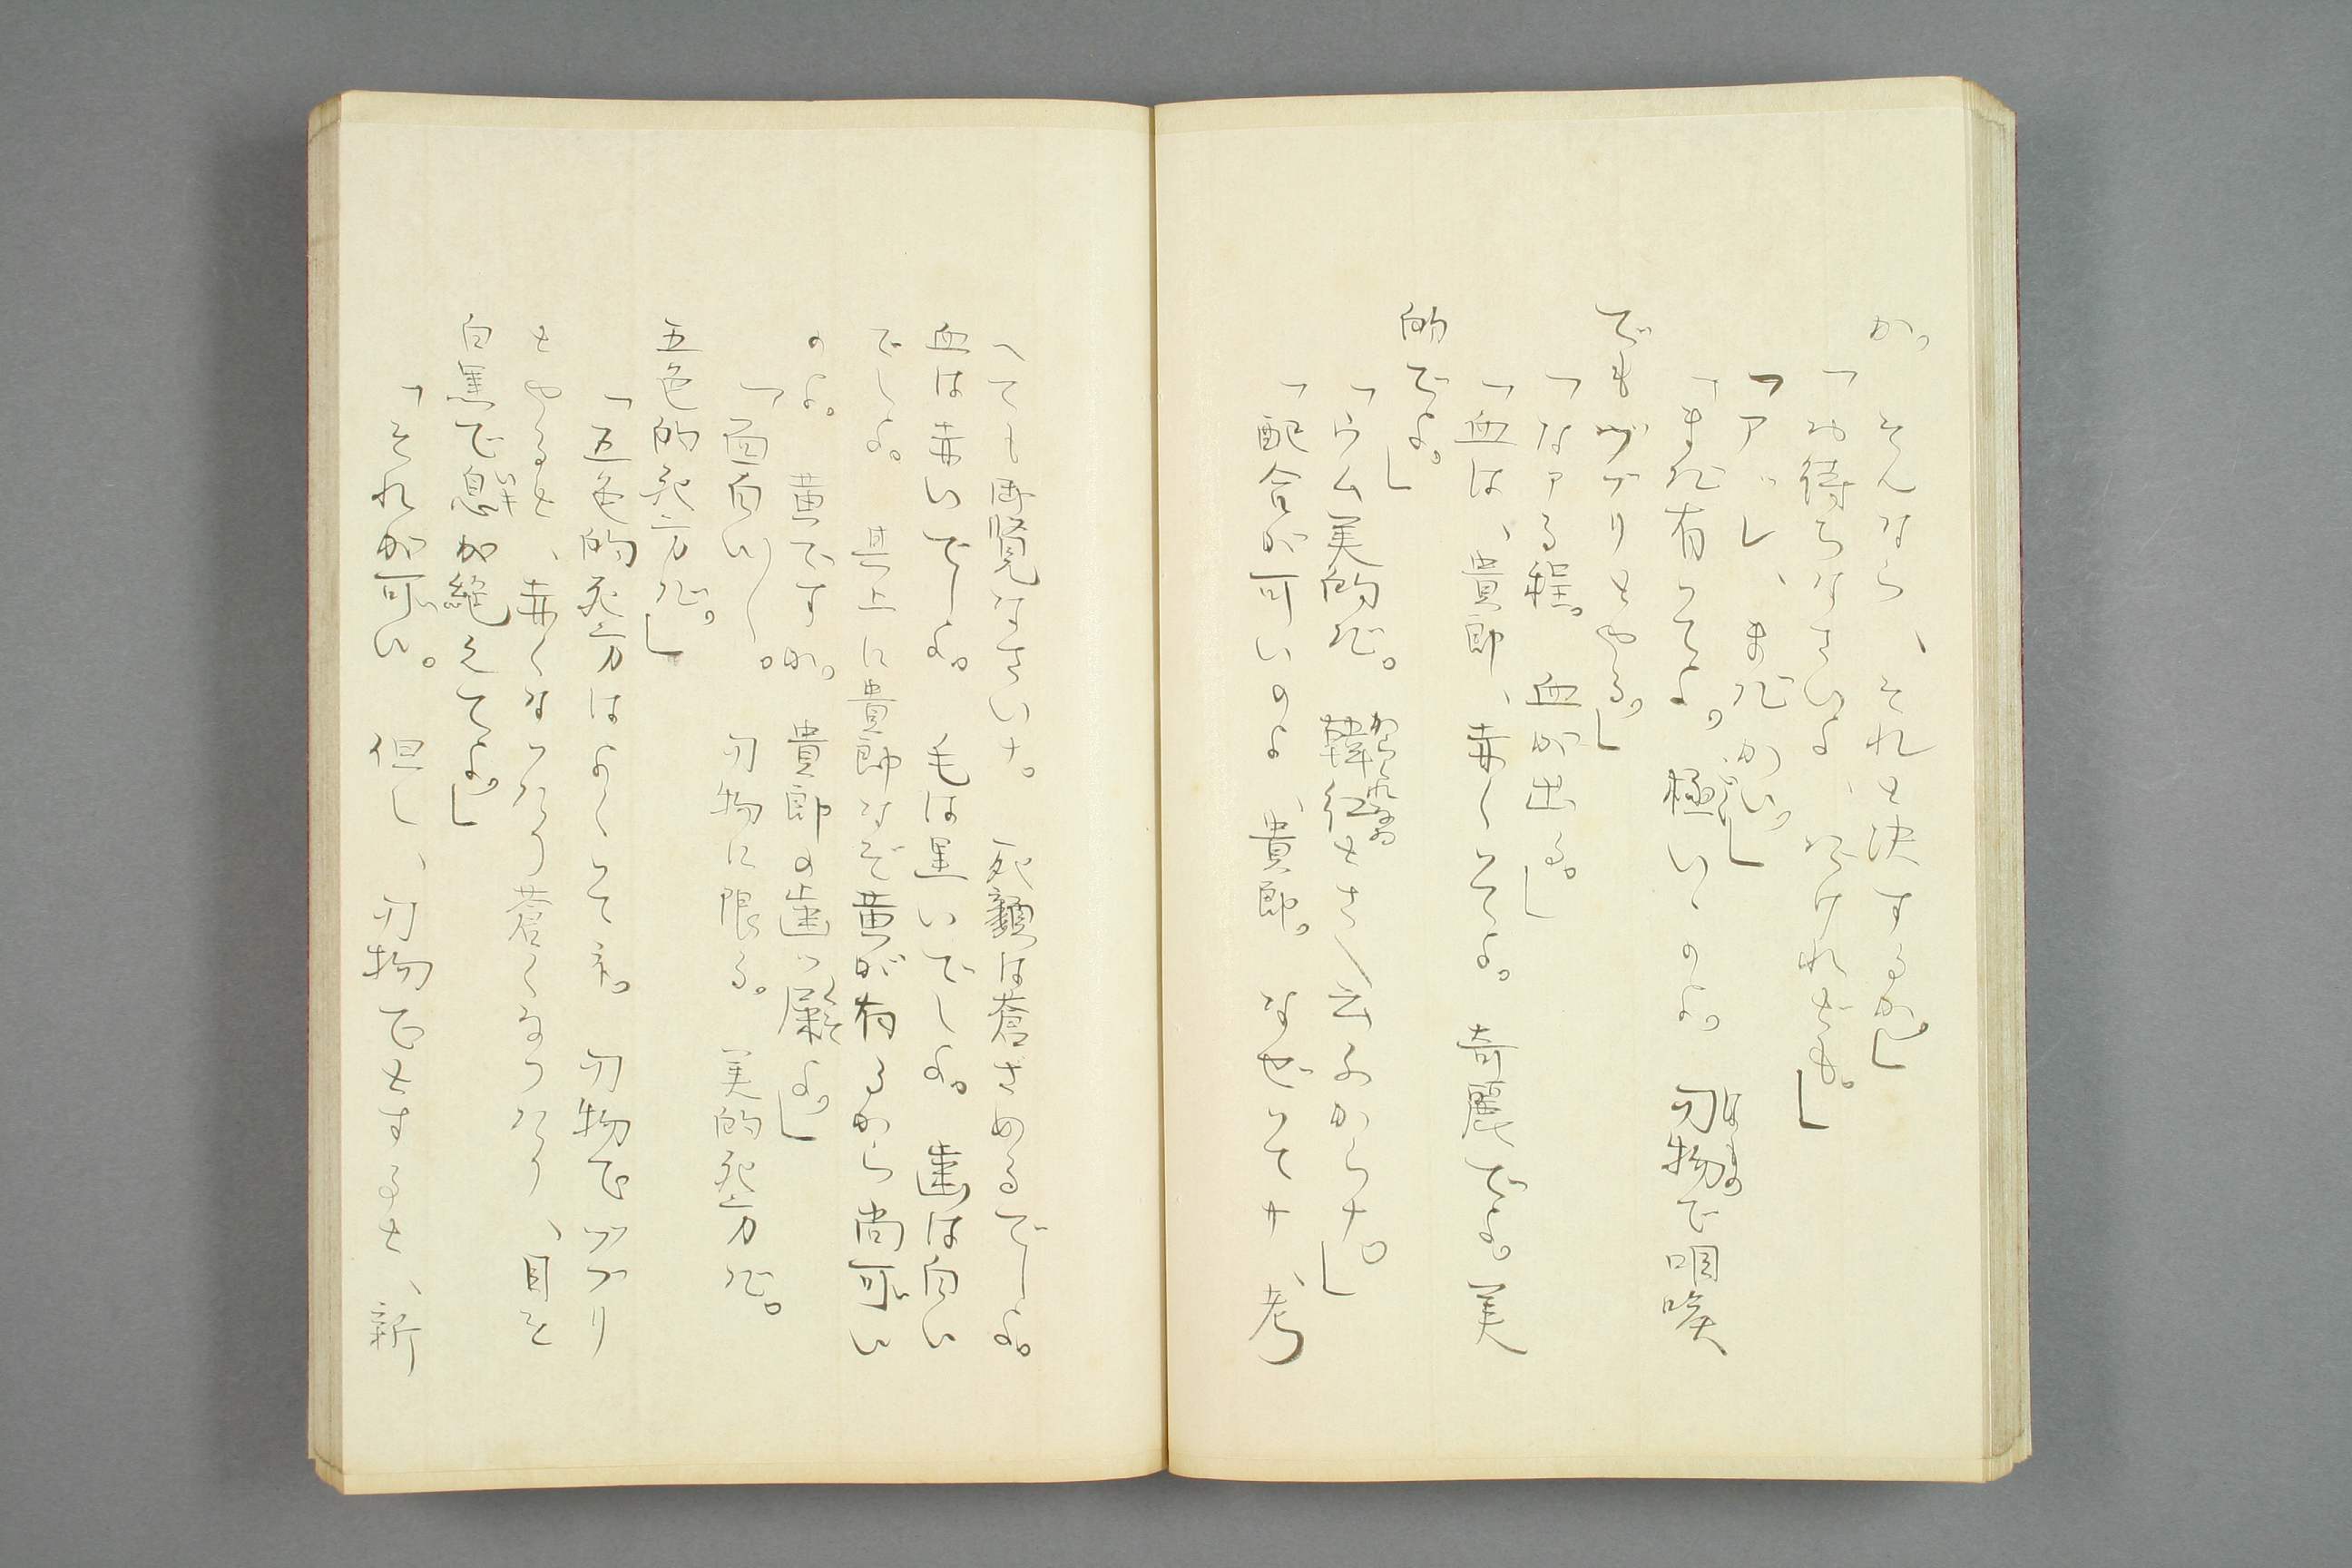 か。そんなら、それと決するか」
「お待ちなさいよ、だけれども。」
「アッレ、まだかい。」
「まだ有ってよ。極いゝのよ。刃物で咽喉
でもヅブリとやる。」
「なアる程。血が出る。」
「血は、貴郎、赤くってよ。奇麗でよ。美
的でよ。」
「ウム美的だ。韓紅とさへ云ふからナ。」
「配合が可いのよ、貴郎。なぜってナ、考
へても御覧なさいナ。死顔は蒼ざめるでしよ。
血は赤いでしよ。毛は黒いでしよ。歯は白い
でしよ。其上に貴郎なぞ黄が有るから尚可い
のよ。黄ですか。貴郎の歯ッ屎よ。」
「面白い〳〵。刃物に限る。美的死方だ。
五色的死方だ。」
「五色的死方はよくって永。刃物でヅブリ
とやると、赤くなったり蒼くなったり、目を
白黒で息が絶えてよ。」
「それが可い。但し、刃物でとすると、新